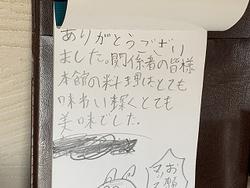 ありがとうござい
ました。関係者の皆様
本館の料理はとても
味わい深くとても
美味でした。